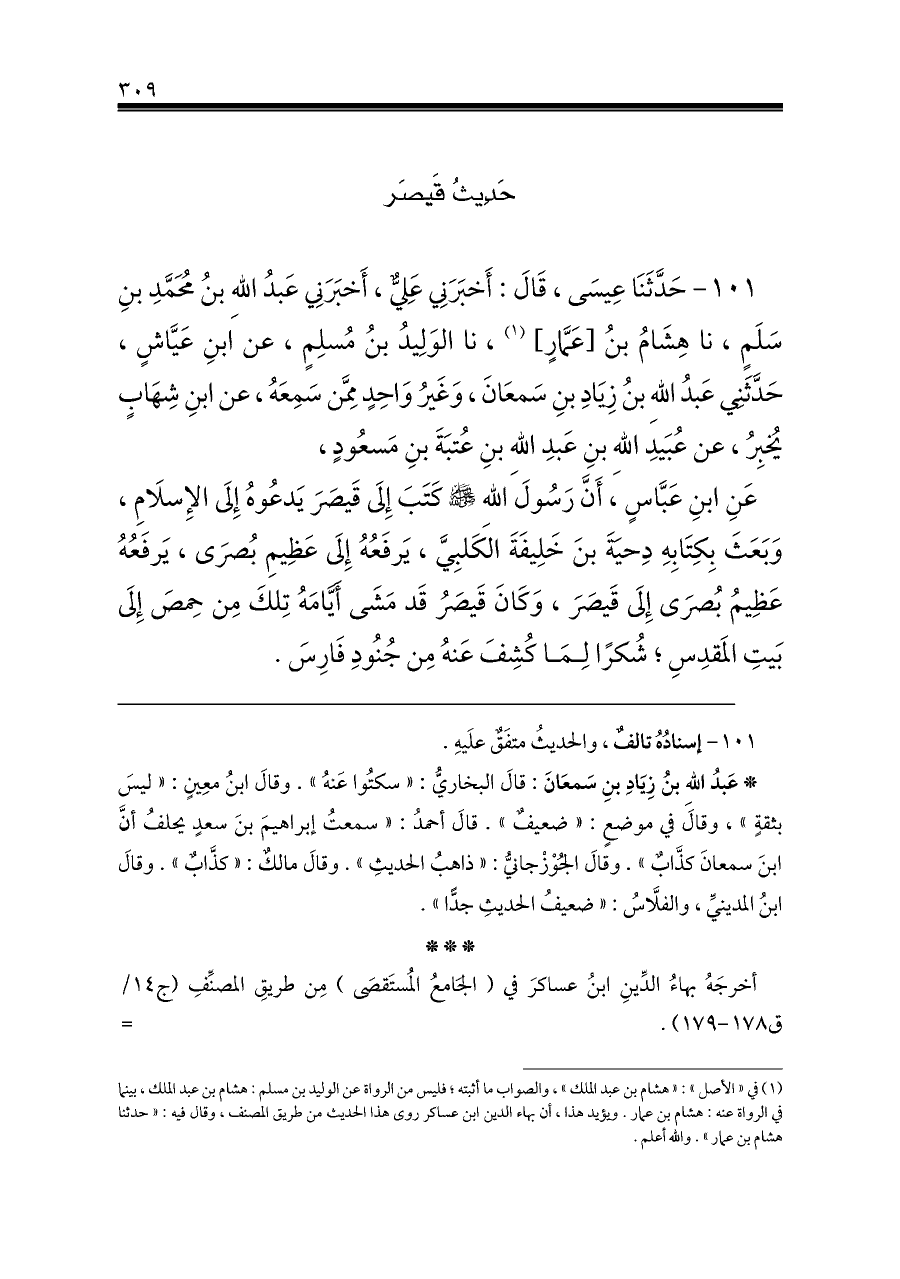 ٣٠٩
حَدِيثُ قَيصَر
١٠١- حَدَّثَنَا عِيسَى ، قَالَ : أَخبَرَنِي عَلِيٌّ ، أَخبَرَنِي عَبدُ اللهِ بنُ مُحَمَّدِ بنِ
سَلَمٍ ، نا هِشَامُ بنُ [عَمَّارٍ] (١) ، نا الوَلِيدُ بنُ مُسلِمٍ ، عن ابنِ عَيَّاشٍ ،
حَدَّثَنِي عَبدُ اللهِ بنُ زِيَادِ بنِ سَمعَانَ ، وَغَيرُ وَاحِدٍ مِمَّن سَمِعَهُ ، عن ابنِ شِهَابٍ
يُخبِرُ ، عن عُبَيدِ اللهِ بنِ عَبدِ اللهِ بنِ عُتبَةَ بنِ مَسعُودٍ ،
عَنِ ابنِ عَبَّاسٍ ، أَنَّ رَسُولَ اللهِ ﷺ كَتَبَ إِلَى قَيصَرَ يَدعُوهُ إِلَى الإِسلَامِ ،
وَبَعَثَ بِكِتَابِهِ دِحيَةَ بنَ خَلِيفَةَ الكَلبِيَّ ، يَرفَعُهُ إِلَى عَظِيمِ بُصرَى ، يَرفَعُهُ
عَظِيمُ بُصرَى إِلَى قَيصَرَ ، وَكَانَ قَيصَرُ قَد مَشَى أَيَّامَهُ تِلكَ مِن حِمصَ إِلَى
بَيتِ المَقدِسِ ؛ شُكرًا لِـمَـا كُشِفَ عَنهُ مِن جُنُودِ فَارِسَ .
١٠١- إسنادُهُ تالفٌ ، والحديثُ متفَقٌ علَيهِ .
* عَبدُ اللهِ بنُ زِيَادِ بنِ سَمعَانَ : قالَ البخاريُّ : « سكتُوا عَنهُ » . وقالَ ابنُ معِينٍ : « ليسَ
بثقةٍ » ، وقالَ في موضعٍ : « ضعيفٌ » . قالَ أحمدُ : « سمعتُ إبراهيمَ بنَ سعدٍ يحلفُ أنَّ
ابنَ سمعانَ كذَّابٌ » . وقالَ الجُوْزْجانيُّ : « ذاهبُ الحديثِ » . وقالَ مالكٌ : « كذَّابٌ » . وقالَ
ابنُ المدينيِّ ، والفلَّاسُ : « ضعيفُ الحديثِ جدًّا » .
* * *
أخرجَهُ بهاءُ الدِّينِ ابنُ عساكرَ في ( الجَامعُ المُستَقصَى ) مِن طريقِ المصنِّفِ (ج١٤/
ق١٧٨-١٧٩) . =
(١) في « الأصل » : « هشام بن عبد الملك » ، والصواب ما أثبته ؛ فليس من الرواة عن الوليد بن مسلم : هشام بن عبد الملك ، بينما
في الرواة عنه : هشام بن عمار . ويؤيد هذا ، أن بهاء الدين ابن عساكر روى هذا الحديث من طريق المصنف ، وقال فيه : « حدثنا
هشام بن عمار » . والله أعلم .